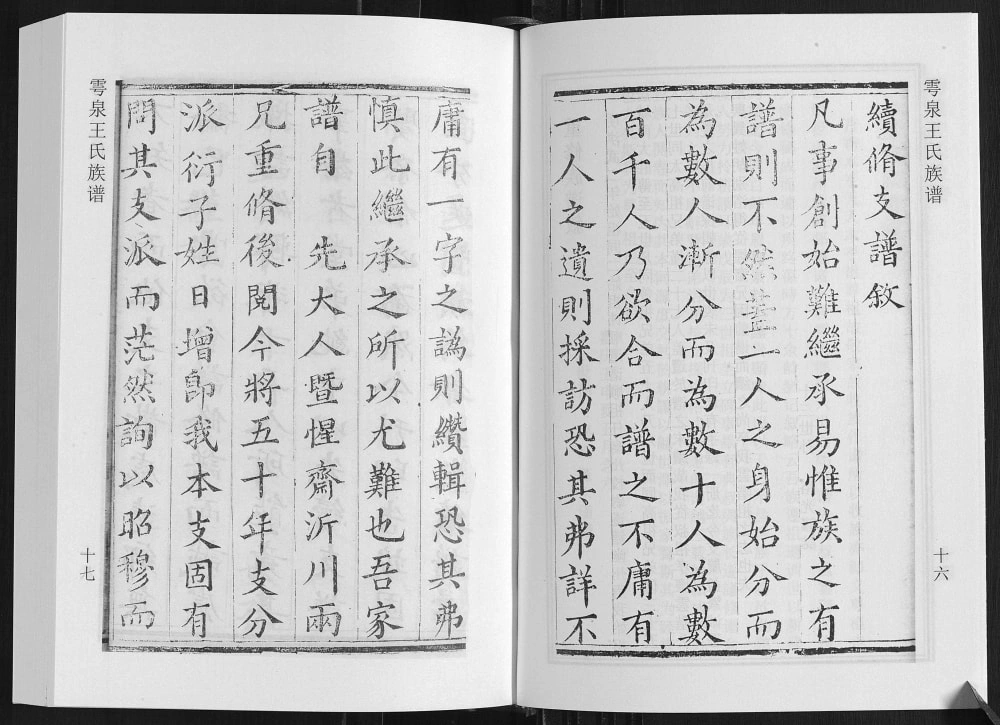 雩泉王氏族谱
十六
續脩支譜敘
凡事創始難繼承易惟族之有
譜則不然葢一人之身始分而
為數人漸分而為數十人為數
百千人乃欲合而譜之不庸有
一人之遺則採訪恐其弗詳不
庸有一字之譌則纘輯恐其弗
慎此繼承之所以尤難也吾家
譜自先大人暨惺齋沂川兩
兄重脩後閱今將五十年支分
派衍子姓日增卽我本支固有
問其支派而茫然詢以昭穆而
雩泉王氏族谱
十七